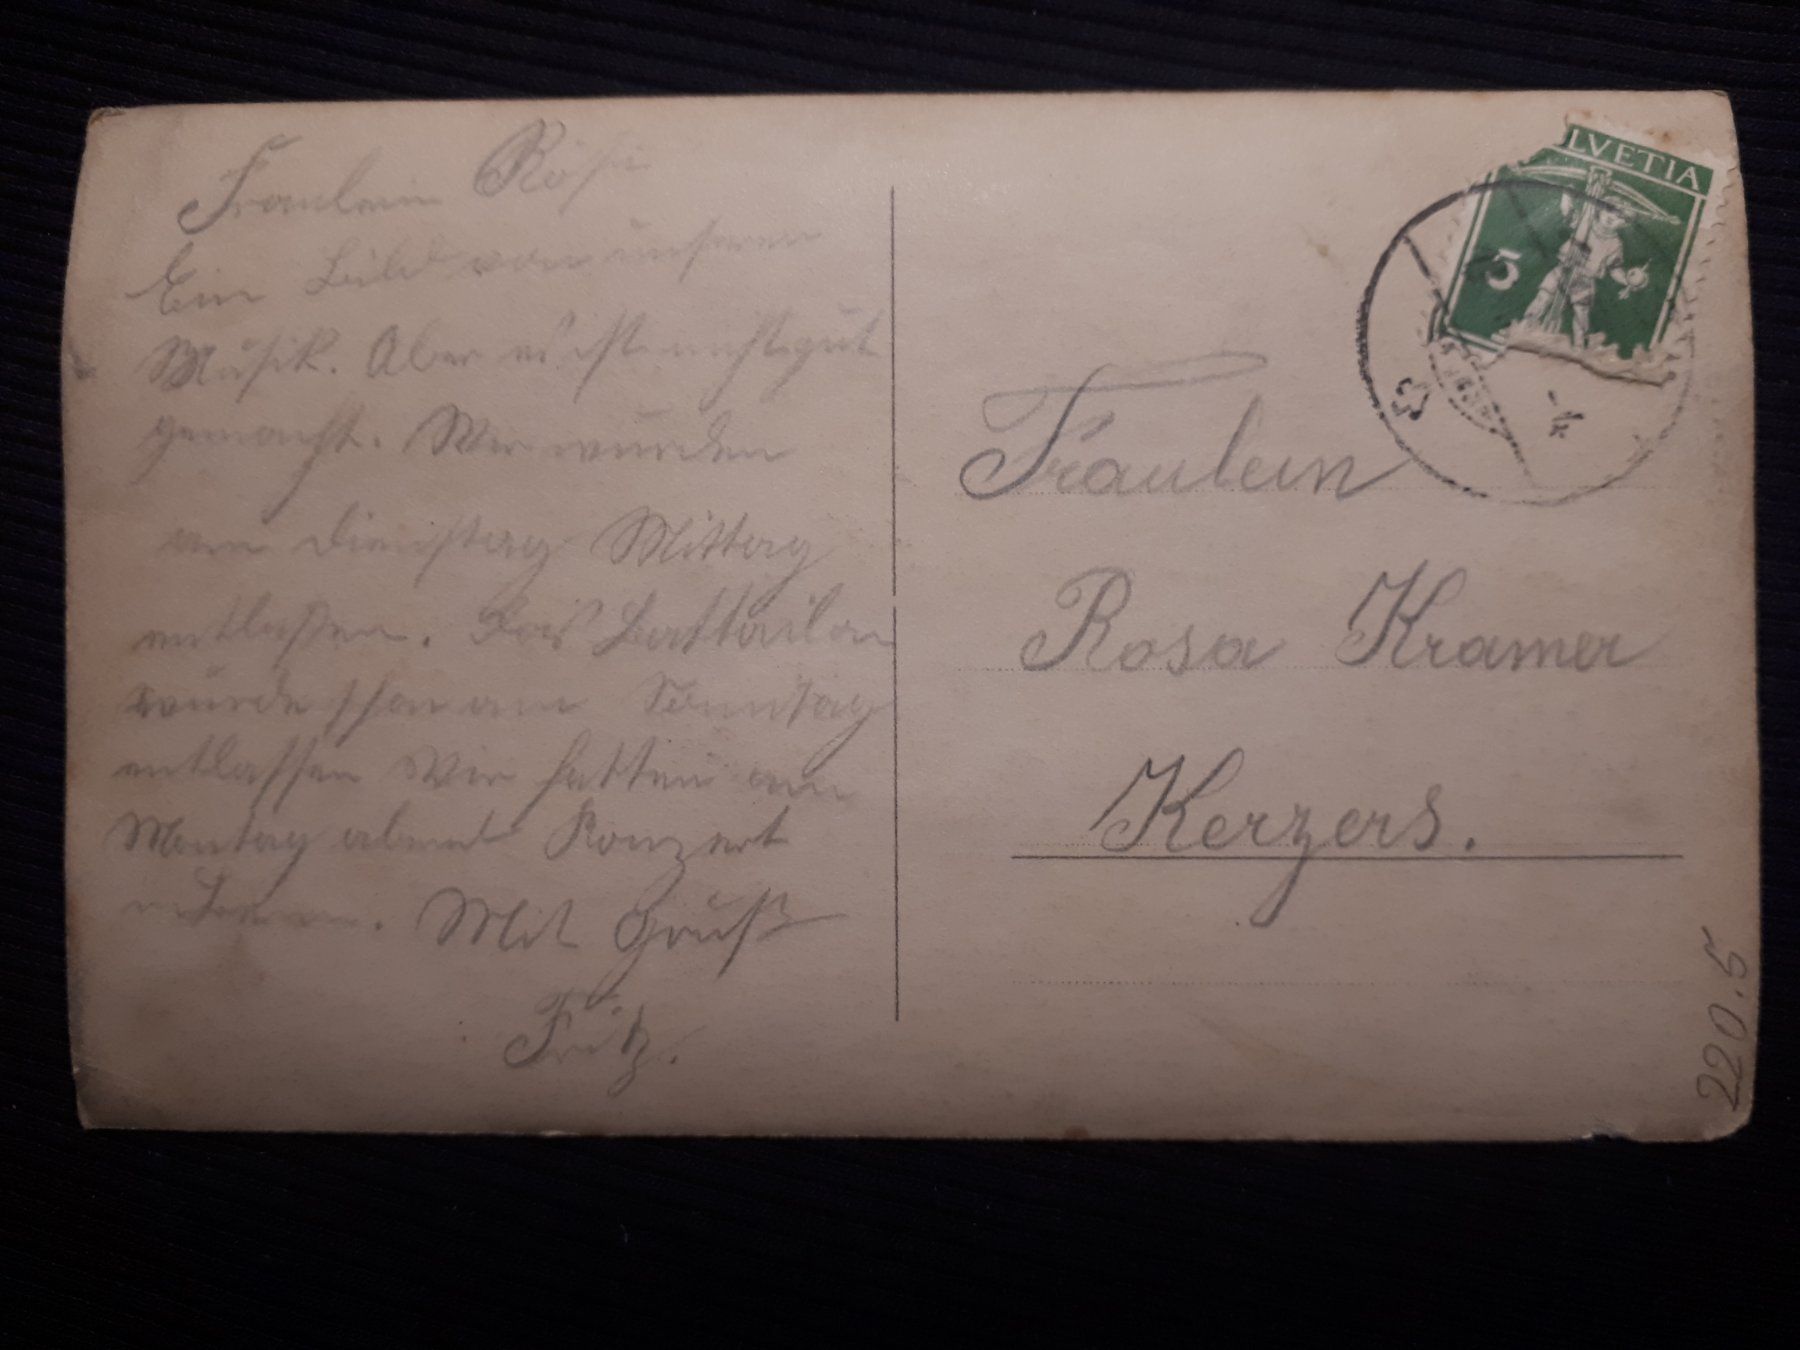 Fraulein Rösi
Ein Bild von unserer
Musik. Aber es ist nicht gut
gemacht. Wir wurden
am Dienstag Mittag
entlaßen. Das Battailon
wurde schon am Sonntag
entlassen Wir hatten am
Montag abent Konzert
Mit Gruß
Fritz.
LVETIA
5
Fräulein
Rosa Kramer
Kerzers.
220.5